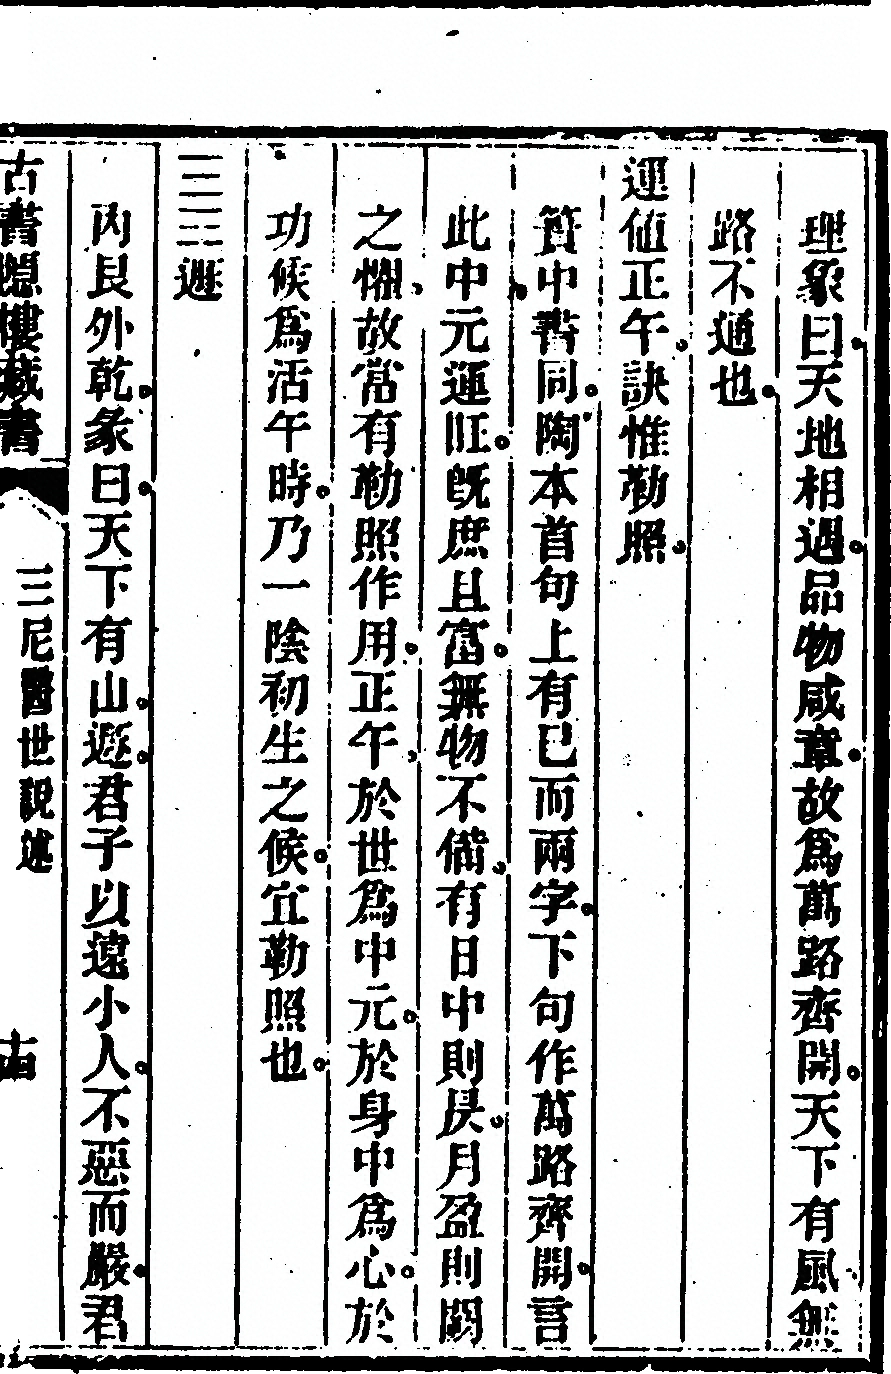 理象曰天地相遇品物咸章故爲萬路齊開天下有風無
路不通也
運値正午訣惟勒照
簣中書同陶本首句上有已而兩字下句作萬路齊開言
此中元運旺旣庶且富無物不備有日中則昃月盈則闕
之懼故當有勒照作用正午於世爲中元於身中爲心於
功候爲活午時乃一陰初生之候宜勒照也
三三遯
內艮外乾象曰天下有山遯君子以遠小人不惡而嚴君
古書隱樓藏書
三尼醫世說述